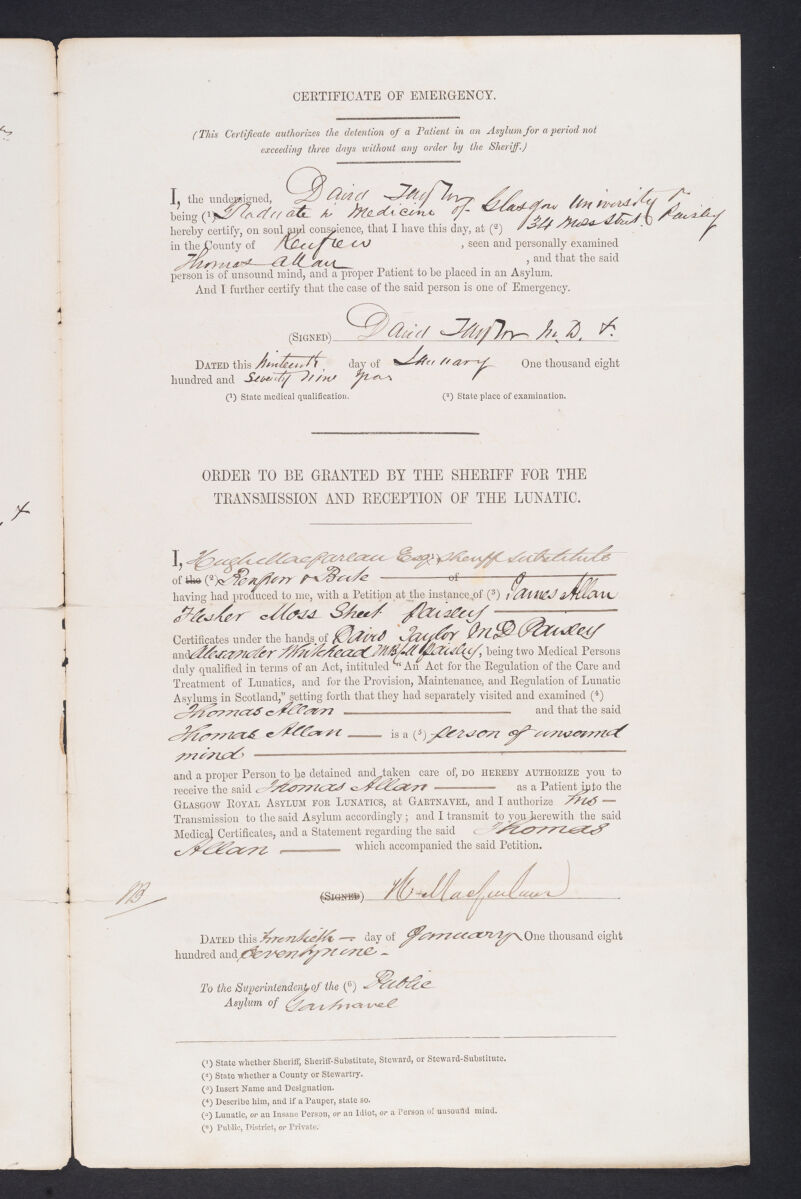 CERTIFICATE OF EMERGENCY.
(This Certificate authorizes the detention of a Patient in an Asylum for a period not
exceeding three days without any order by the Sheriff.)
I, the undersigned, David Taylor
being (1) Graduate in Medicine of Glasgow University
hereby certify, on soul and conscience, that I have this day, at (2) 34 Moss Street Paisley
in the County of Renfrew , seen and personally examined
Thomas Allan , and that the said
person is of unsound mind, and a proper Patient to be placed in an Asylum.
And I further certify that the case of the said person is one of Emergency.
(SIGNED) David Taylor M.D. &.
DATED this Ninteenth day of January One thousand eight
hundred and Seventy Nine years
(1) State medical qualification. (2) State place of examination.
ORDER TO BE GRANTED BY THE SHERIFF FOR THE
TRANSMISSION AND RECEPTION OF THE LUNATIC.
I, Hugh Macfarlan Esq. Sheriff Substitute
of the (2) Renfrew & Bute of
having had produced to me, with a Petition at the instance of (3) James Allan
Flesher Moss Street Paisley
Certificates under the hands of David Taylor M D Paisley
and Alexander Whitehead Paisley, being two Medical Persons
duly qualified in terms of an Act, intituled "An Act for the Regulation of the Care and
Treatment of Lunatics, and for the Provision, Maintenance, and Regulation of Lunatic
Asylums in Scotland," setting forth that they had separately visited and examined (4)
Thomas Allan and that the said
Thomas Allan is a (5) person of unsound
mind
and a proper Person to be detained and taken care of, DO HEREBY AUTHORIZE you to
receive the said Thomas Allan as a Patient into the
GLASGOW ROYAL ASYLUM FOR LUNATICS, at GARTNAVEL, and I authorize his
Transmission to the said Asylum accordingly; and I transmit to you herewith the said
Medical Certificates, and a Statement regarding the said Thomas
Allan which accompanied the said Petition.
(SIGNED) H Macfarlan
DATED this twentieth day of January One thousand eight
hundred and seventynine
To the Superintendent of the (6) Public
Asylum of Gartnavel
(1) State whether Sheriff, Sheriff-Substitute, Steward, or Steward-Substitute.
(2) State whether a County or Stewartry.
(3) Insert Name and Designation.
(4) Describe him, and if a Pauper, state so.
(5) Lunatic, or an Insane Person, or an Idiot, or a Person of unsound mind.
(6) Public, District, or Private.